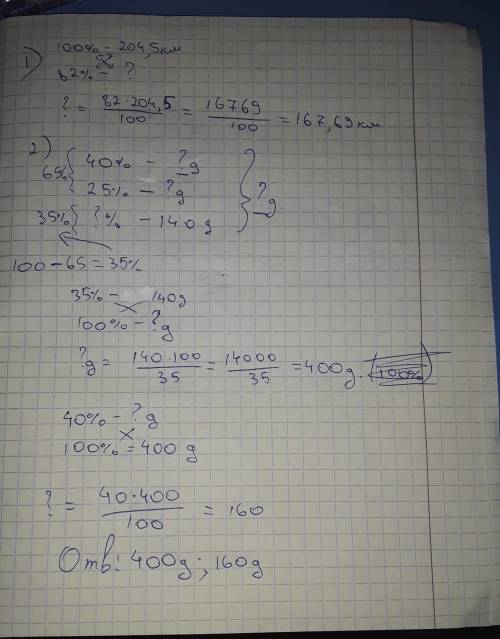 1) 100% - 204,5км
82% - ?
? = 82·204,5 / 100 = 16769 / 100 = 167,69 км
2) 65% { 40% - ? g
25% - ? g
35% { ?% - 140 g } ? g.
100 - 65 = 35%
35% - 140g
100% - ? g
? g = 140·100 / 35 = 14000 / 35 = 400g.
40% - ? g
100% = 400 g
? = 40·400 / 100 = 160
Отв: 400g; 160g